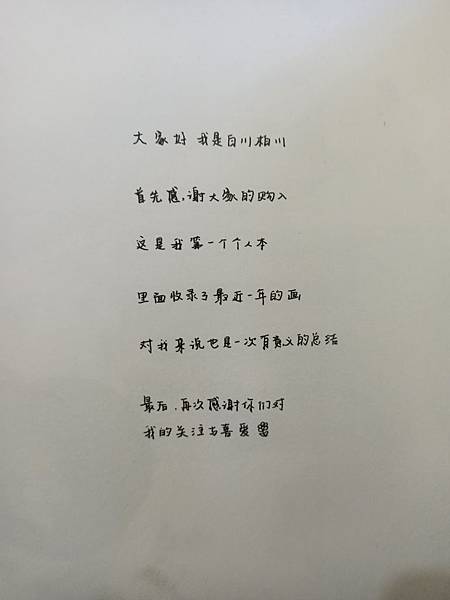 大家好 我是白川柏川
首先感谢大家的购入
这是我第一个个人本
里面收录了最近一年的画
对我来说也是一次有意义的总结
最后,再次感谢你们对
我的关注与喜爱